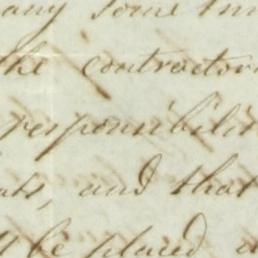 any some
the contractor
responsibilit
ats, and that
be placed